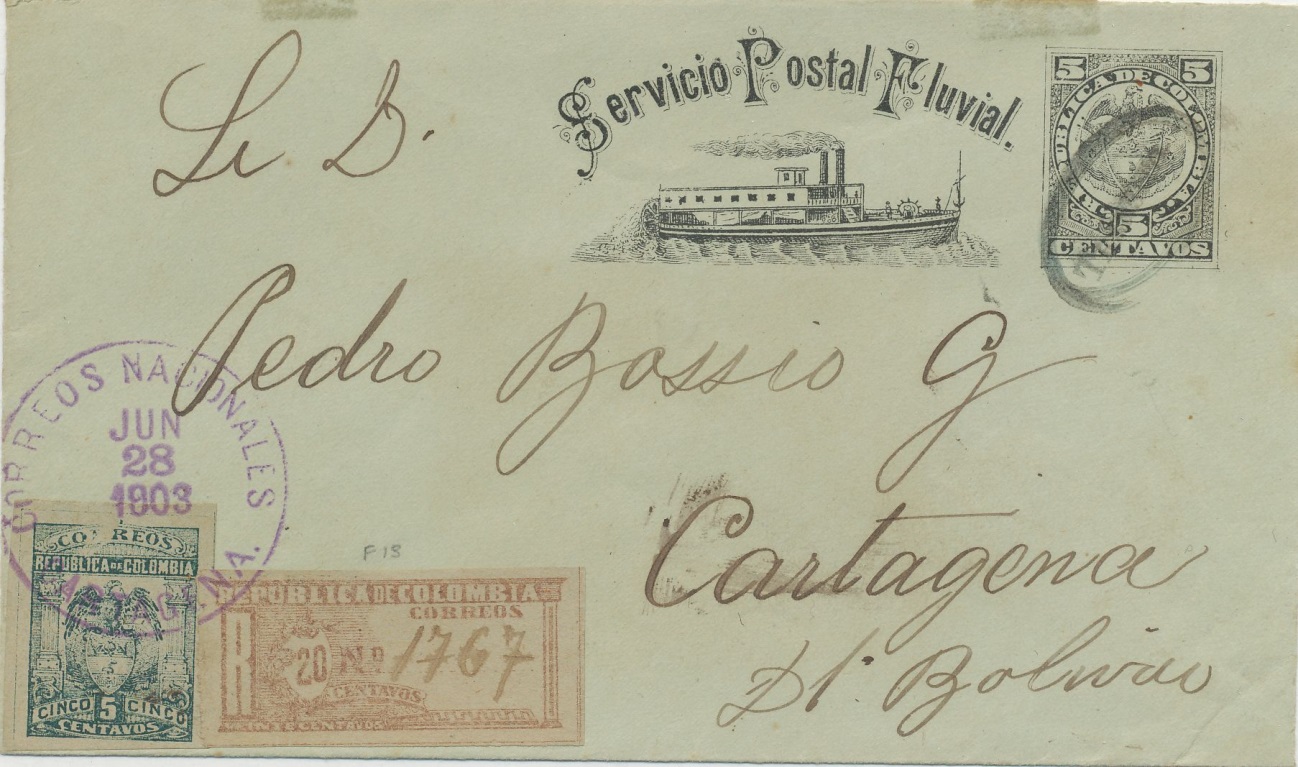 Servicio Postal Fluvial.
5 5
REPUBLICA DE COLOMBIA
5
CENTAVOS
Pedro Bossio G
Cartagena
Bolivar
CORREOS NACIONALES
JUN
28
1903
CARTAGENA.
CORREOS
REPUBLICA DE COLOMBIA
CINCO 5 CINCO
CENTAVOS
F18
REPÚBLICA DE COLOMBIA
CORREOS
R 20 No 1767
CENTAVOS
VEINTE CENTAVOS